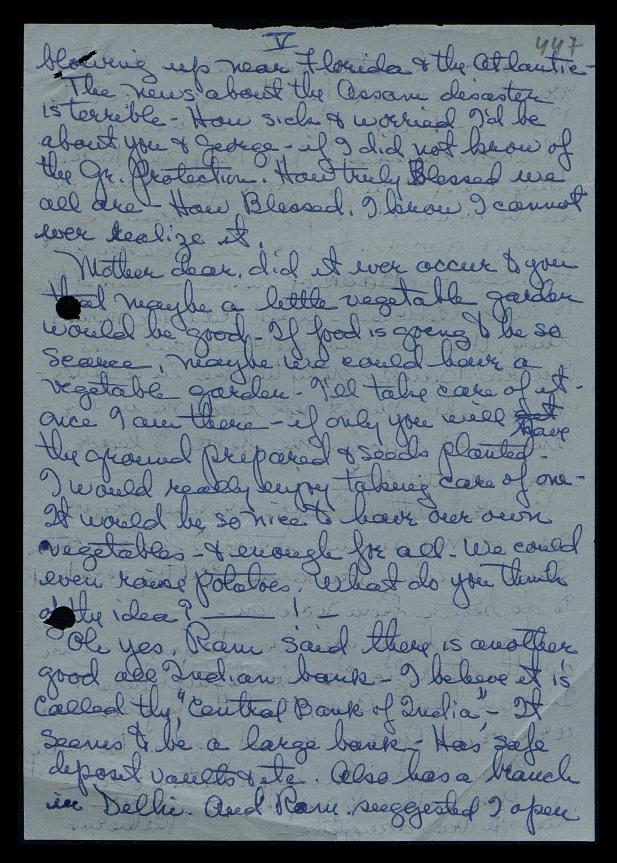 V
447
blowing up near Florida & the Atlantic -
The news about the Assam desaster
is terrible - How sick & worried I'd be
about you & George - if I did not know of
the Gr. Protection. How truly Blessed we
all are - How Blessed. I know I cannot
ever realize it.
Mother dear, did it ever occur to you
that maybe a little vegetable garden
would be good - If food is going to be so
scarce, maybe we could have a
vegetable garden - I'll take care of it -
once I am there - if only you will get have
the ground prepared & seeds planted -
I would really enjoy taking care of one -
It would be so nice to have our own
vegetables - & enough for all - We could
even raise potatoes. What do you think
of the idea? ——— ! -
Oh yes, Ram said there is another
good all Indian bank - I believe it is
called the "Central Bank of India" - It
seems to be a large bank - Has safe
deposit vaults & etc. Also has a branch
in Delhi. And Ram suggested I open